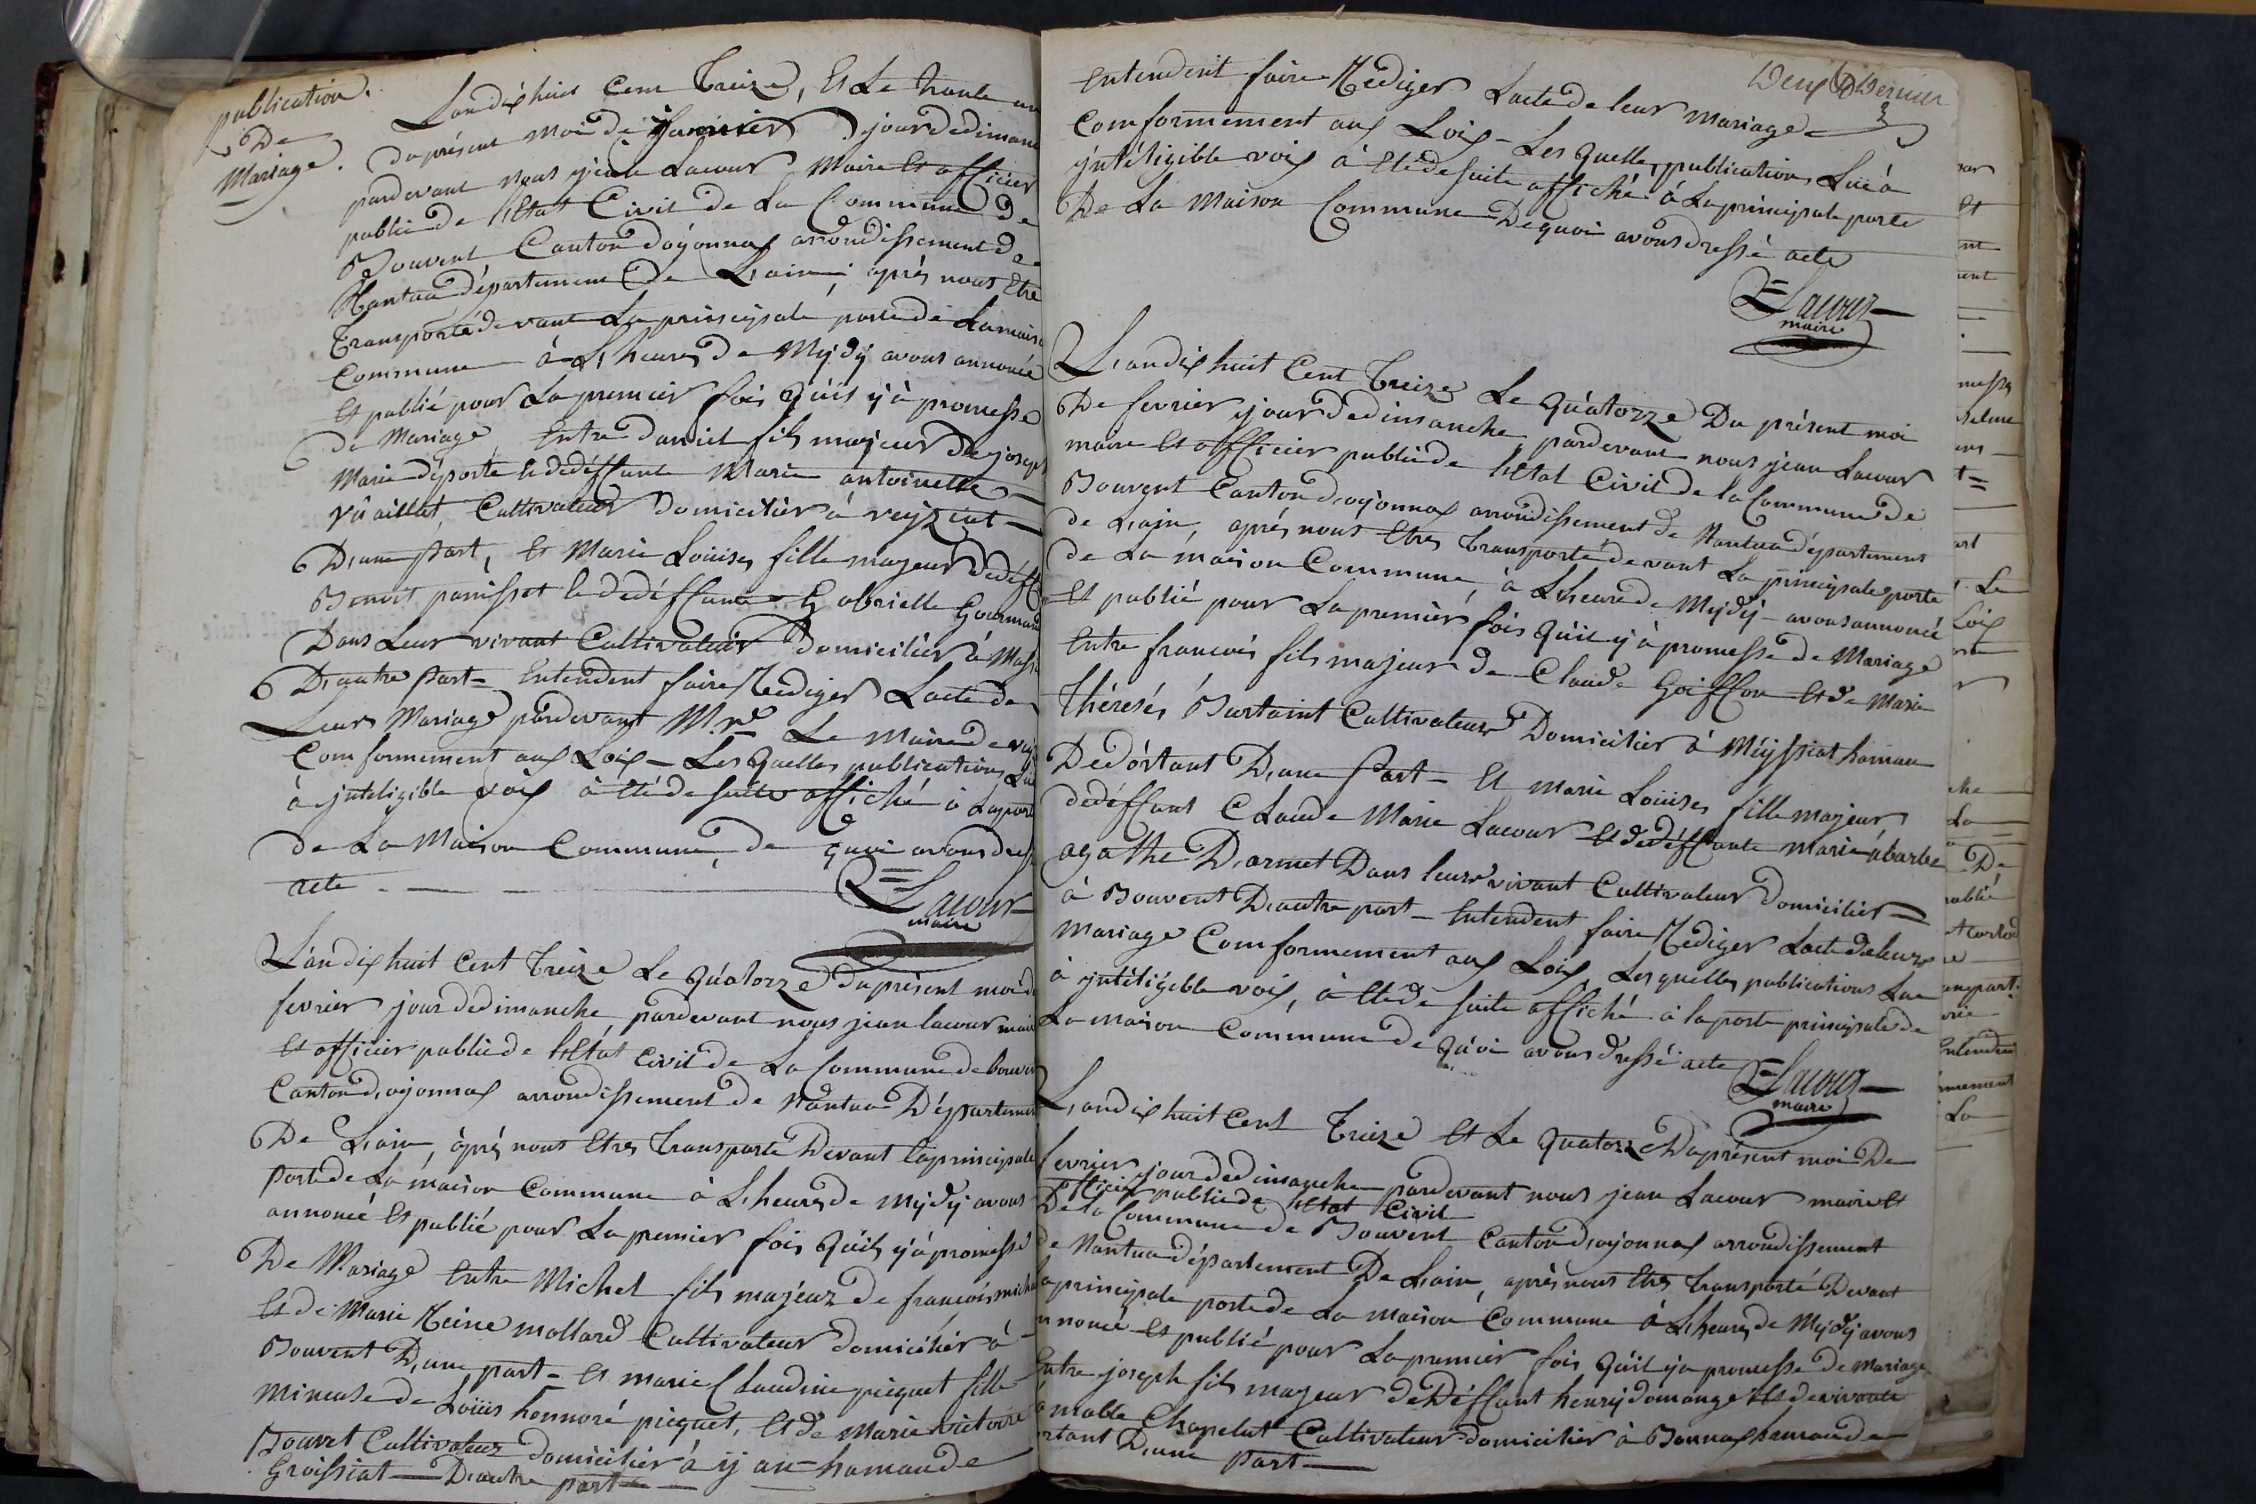 publication.
De
Mariage.
Landixhuit Cent Treize, Et Le trante un
du présent moi de Janvier jour dedimanc
pardevant nous jean Lacour Maire Et officier
public de l'Etat Civil de La Commune de
Bouvent Canton d'oyonnax arrondissement de
Nantua département de L'ain; après nous Etre
Transporté devant La principale porte de Lamaiso
Commune à L'heure de Mydÿ avons annoncé
Et publié pour La premier fois qu'il y à promesse
de Mariage, Entre daniel fils majeur De joseph
Marie déporte Et dedéffunt Marie antoinette
vüaillat, Cultivateur domicilier à veyziat
D'une part, Et Marie Loüise, fille majeur dedéff
Benoit panisset Et dedéffunte Gabrielle Gourmand
Dans Leur vivant Cultivateur domicilier à Massi
D'autre Part - Entendent faire Rediger Lacte de
Leur Mariage pardevant Mr. Le Maire de vey
Comformement aux Loix - Les quelles publications Luë
à jnteligible voix à été de suite affiché à Laporte
de La Maison Commune, de quoi avons dressé
acte
Lacour
maire
L'andixhuit Cent Treize Le quatorze du présent moi de
fevrier jour dedimanche pardevant nous jean lacour maire
Et officier public de l'Etat Civil de La Commune de bouvent
Canton d'oyonnax arrondissement de Nantua Départemen
De L'ain, après nous Etre Transporté Devant laprincipale
Porte de La maison Commune à L'heure de mydÿ avons
annoncé Et publié pour La premier fois qu'il y à promesse
De Mariage Entre Michel fils majeur de francois michel
Et de Marie Reine mollard Cultivateur domicilier à
Bouvent D'une part - Et marie Claudine picquet fille
mineuse de Loüis honnoré picquet, Et de Marie victoire
Bouvet Cultivateur domicilier à ij an hamau de
Groissiat - D'autre part

Entendent faire Rediger Lacte de leur mariage
Comformement aux Loix - Les quelles publications Luë à
jntéligible voix à été de suite affiché à Laprincipale porte
De La Maison Commune De quoi avons dressé acte
Lacour
maire
L'andixhuit Cent Treize Le quatorze Du présent moi
De fevrier jour dedimanche pardevant nous jean Lacour
maire Et officier public de l'Etat Civil de la Commune de
Bouvent Canton d'oyonnax arrondissement de Nantua département
de L'ain, après nous Etre transporté devant La principale porte
de La maison Commune, à L'heure de Mydÿ - avons annoncé
Et publié pour La premier fois qu'il y à promesse de Mariage
Entre francois fils majeur de Claude Goiffon Et de Marie
Thérèse Bustaint Cultivateur Domicilier à Méyssiat hamau
Dedortant D'une Part - Et marie Loüise, fille majeur
dedéffunt Claude Marie Lacour Et dedéffunte marie abarbe
agathe Darmet Dans leur vivant Cultivateur domicilier
à Bouvent D'autre part - Entendent faire Rediger Lacte de leur
mariage Comformement aux Loix, Les quelles publications Lue
à jntéligible voix, à été de suite affiché à la porte principale de
La maison Commune de quoi avons dressé acte
Lacour
maire
L'andixhuit Cent Treize Et Le quatorze Du présent moi De
fevrier jour dedimanche pardevant nous jean Lacour maire Et
officier public de l'Etat Civil
De la Commune de Bouvent Canton d'oyonnax arrondissement
de Nantua département De L'ain, après nous Etre transporté Devant
laprincipale porte de La maison Commune à L'heure de Mydÿ avons
annoncé Et publié pour La premier fois qu'il y à promesse de mariage
Entre joseph fils majeur de Déffunt henrÿ domange Et de vivante
aimable Chapelut Cultivateur domicilier à Bonnax hamau de
ortant D'une Part